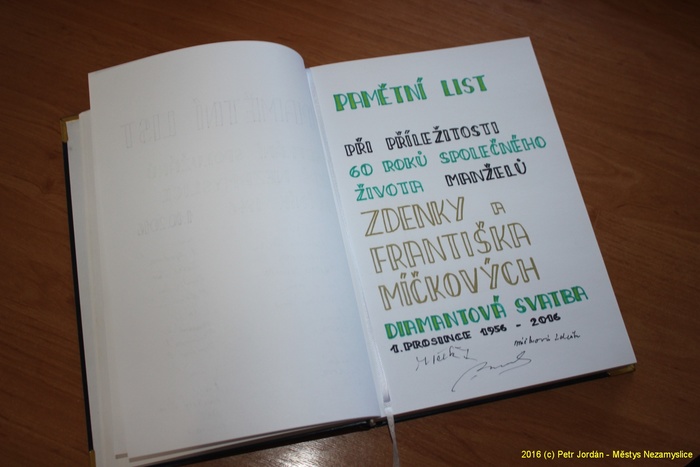 PAMĚTNÍ LIST
PŘI PŘÍLEŽITOSTI
60 ROKŮ SPOLEČNÉHO
ŽIVOTA MANŽELŮ
ZDENKY A
FRANTIŠKA
MÍČKOVÝCH
DIAMANTOVÁ SVATBA
1. PROSINCE 1956 - 2016
2016 (c) Petr Jordán - Městys Nezamyslice